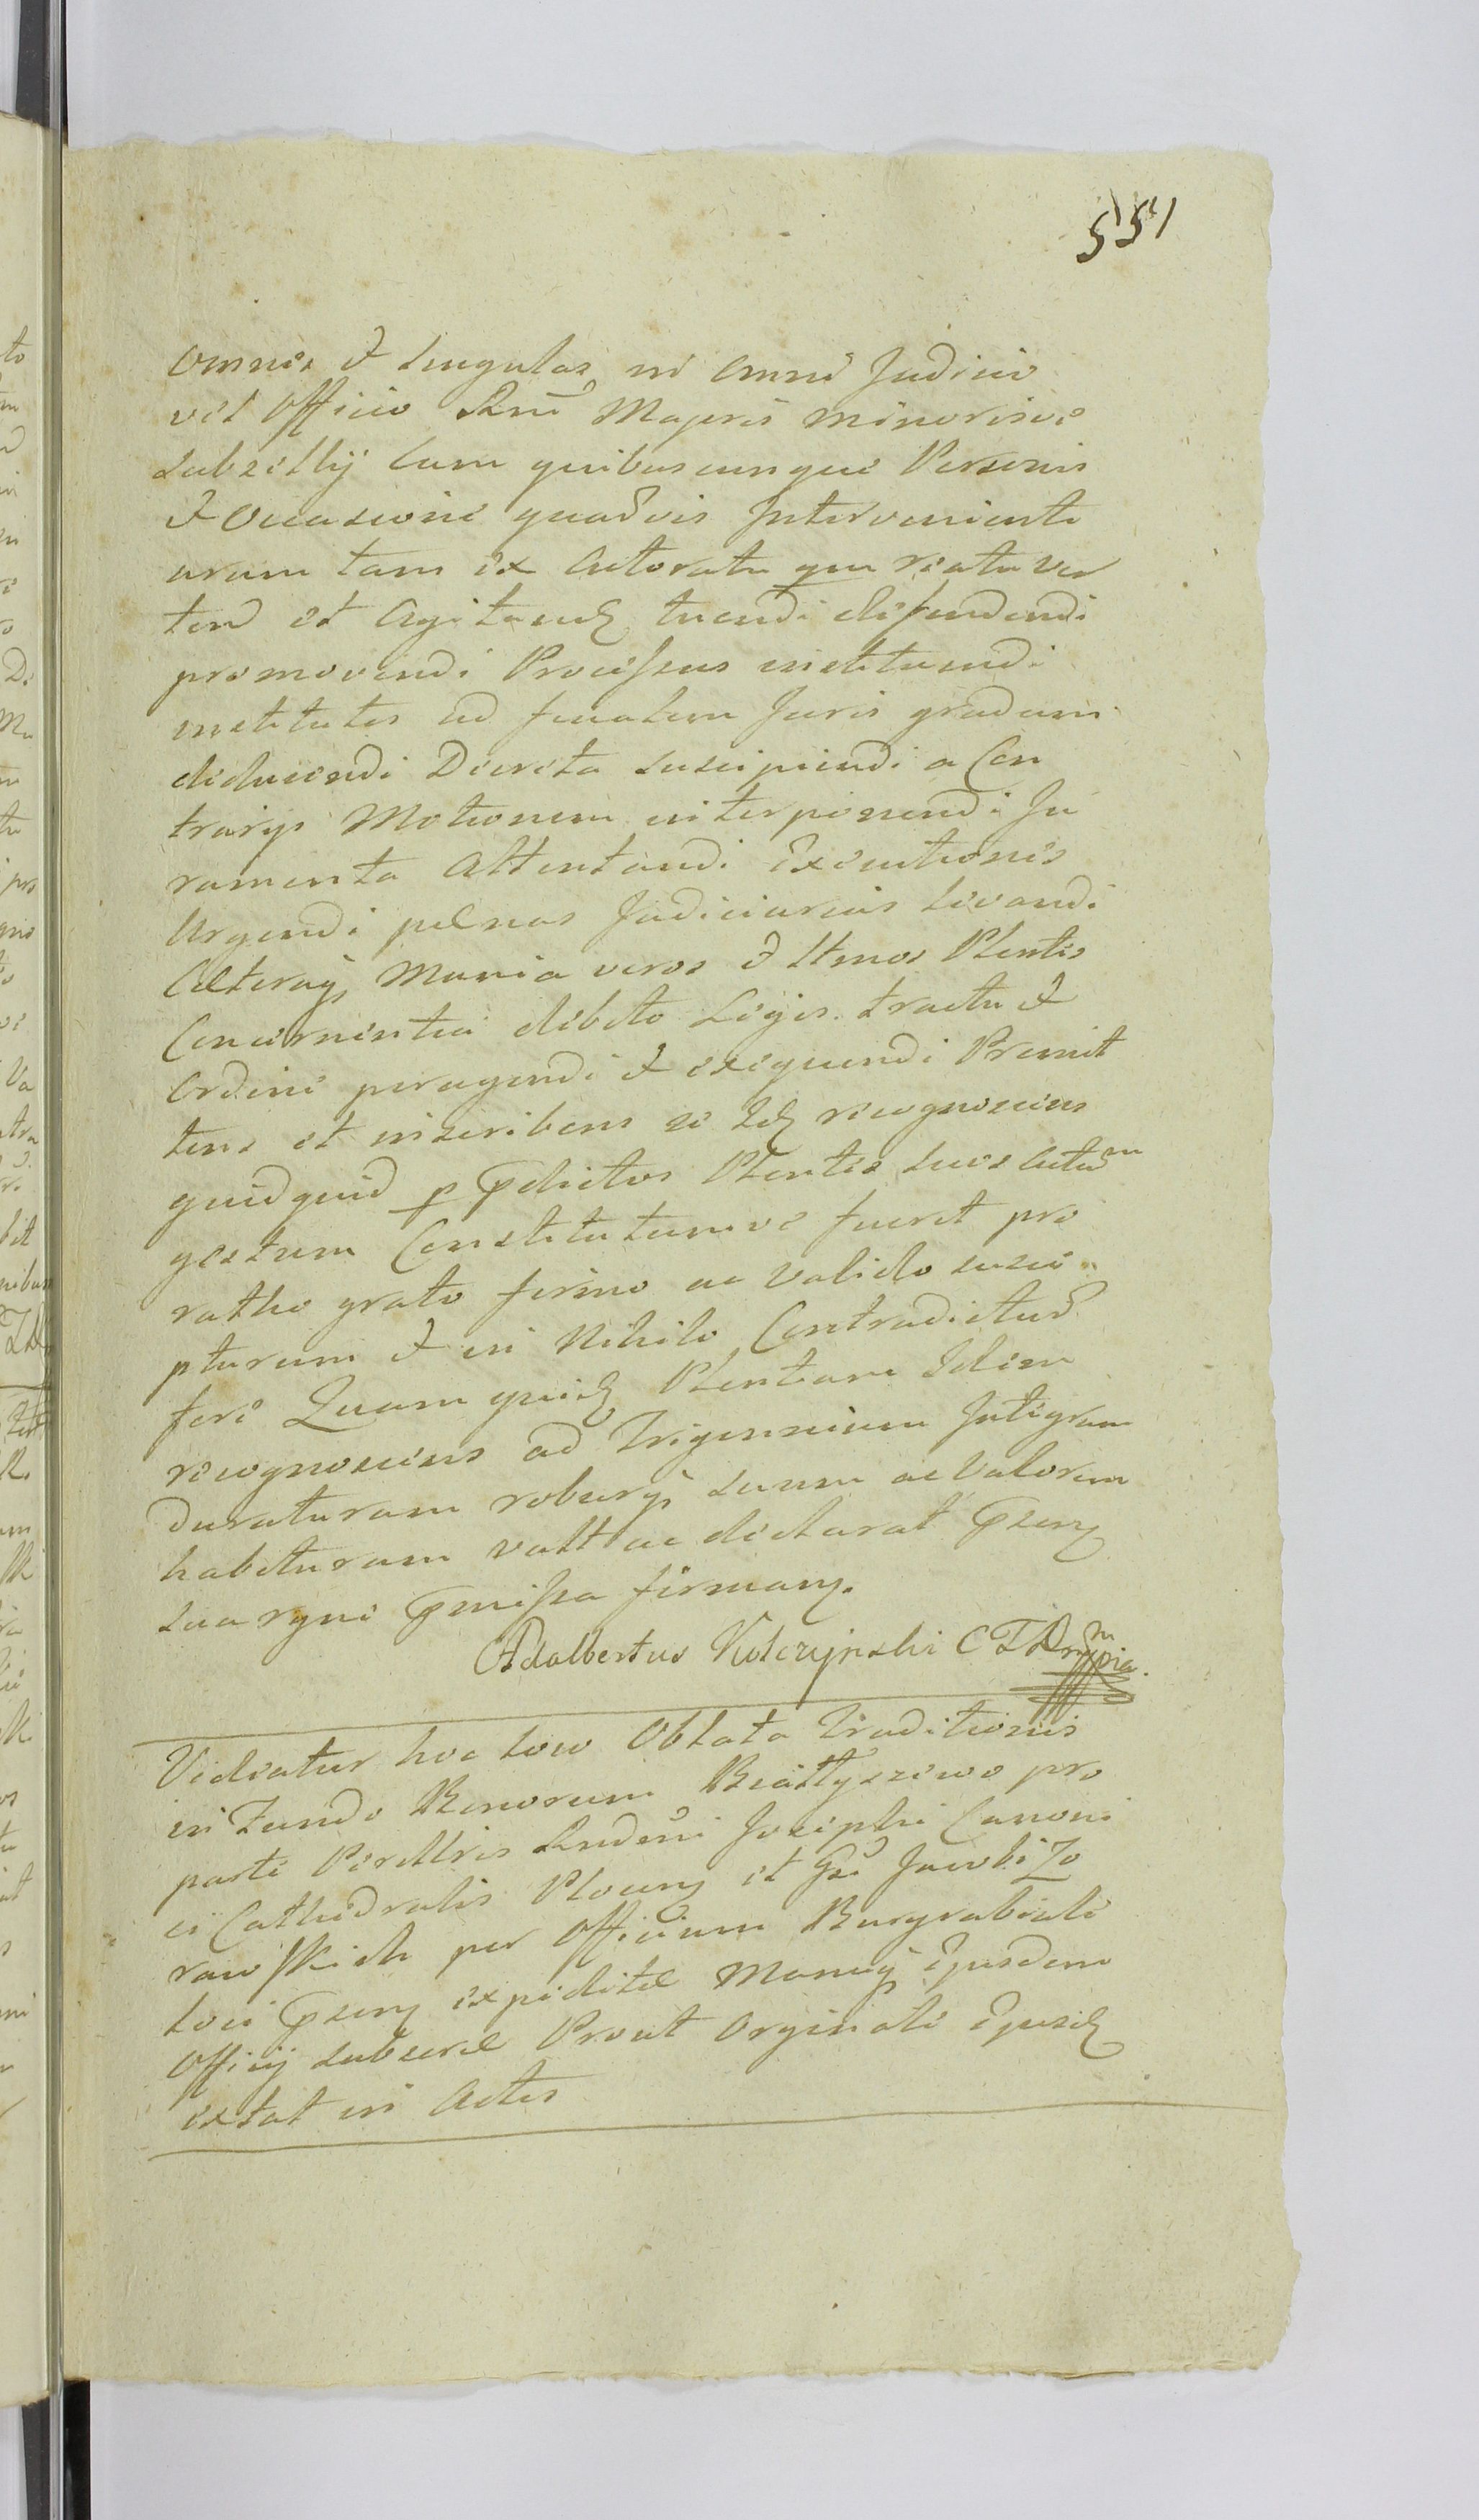 551
omnes et singulas in omni Judicio
vel Officio Rni Majoris minorisve
subsellij cum quibuscunque Personis
et occasione quadvis Intervenient
arum tam ex Actoratu qm reatu ver
tend et Agitand tuendi defendendi
promovendi Processus instituendi
institutos ad finalem Juris gradum
deducendi Decreta suscipiendi a Con
trarijs Motionem interponendi Ju
ramenta Attentandi Executiones
Urgendi pænas Judiciarias Levandi
Cæteraq Munia veros et ltmos Plentes
Concernentia debito Legis tractu et
Ordine peragendi et exequendi Premit
tens et inscribens se Id recognoscens
quidquid p pdictos Plentes suos actum
gestum Constitutumve fuerit pro
ratho grato firmo ac valido susce
pturum et in Nihilo Contradictur
fore Quam quid Plentiam Idem
recognoscens ad Trigennium Integrum
duraturam roburq suum ac Valorem
habituram vult ac declarat psens
sua rgni pmissa firmans.
Adalbertus Kulczynski CTD mpia
Videatur hoc loco Oblata Traditionis
in Fundo Bonorum Białłyszewo pro
parte Perillris Rndeni Josephi Canoni
ci Cathedralis Plocens et Gsi Jacobi Zo
rawskich per Officium Burgrabiale
loci psens expeditæ Manuq Ejusdem
Officij subscræ Prout Orginale Ejusd
extat in Actis